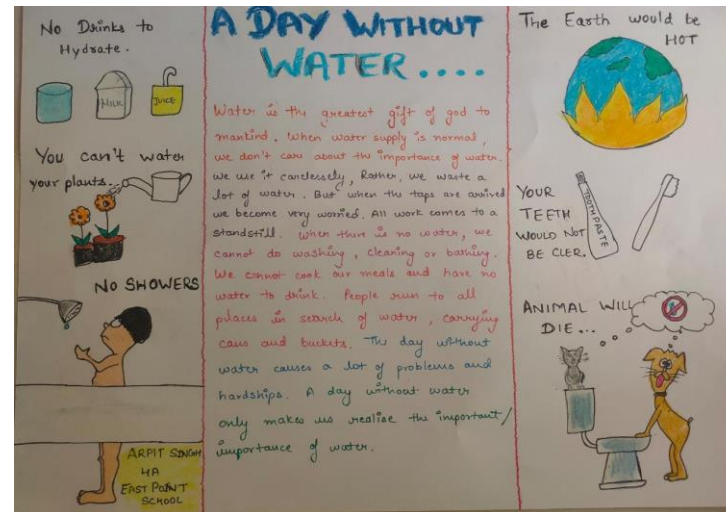 No Drinks to
Hydrate.
MILK
JUICE
You can't water
your plants...
NO SHOWERS
ARPIT SINGH
HA
EAST POINT
SCHOOL
A DAY WITHOUT
WATER....
Water is the greatest gift of god to
mankind. When water supply is normal,
we don't care about the importance of water.
We use it carelessely, Rather, we waste a
lot of water. But when the taps are arrived
we become very worried. All work comes to a
standstill. When there is no water, we
cannot do washing, cleaning or bathing.
We cannot cook our meals and have no
water to drink. People run to all
places in search of water, carrying
cans and buckets. The day without
water causes a lot of problems and
hardships. A day without water
only makes us realise the important/
importance of water.
The Earth would be
HOT
YOUR
TEETH
WOULD NOT
BE CLER.
TOOTH PASTE
ANIMAL WILL
DIE...